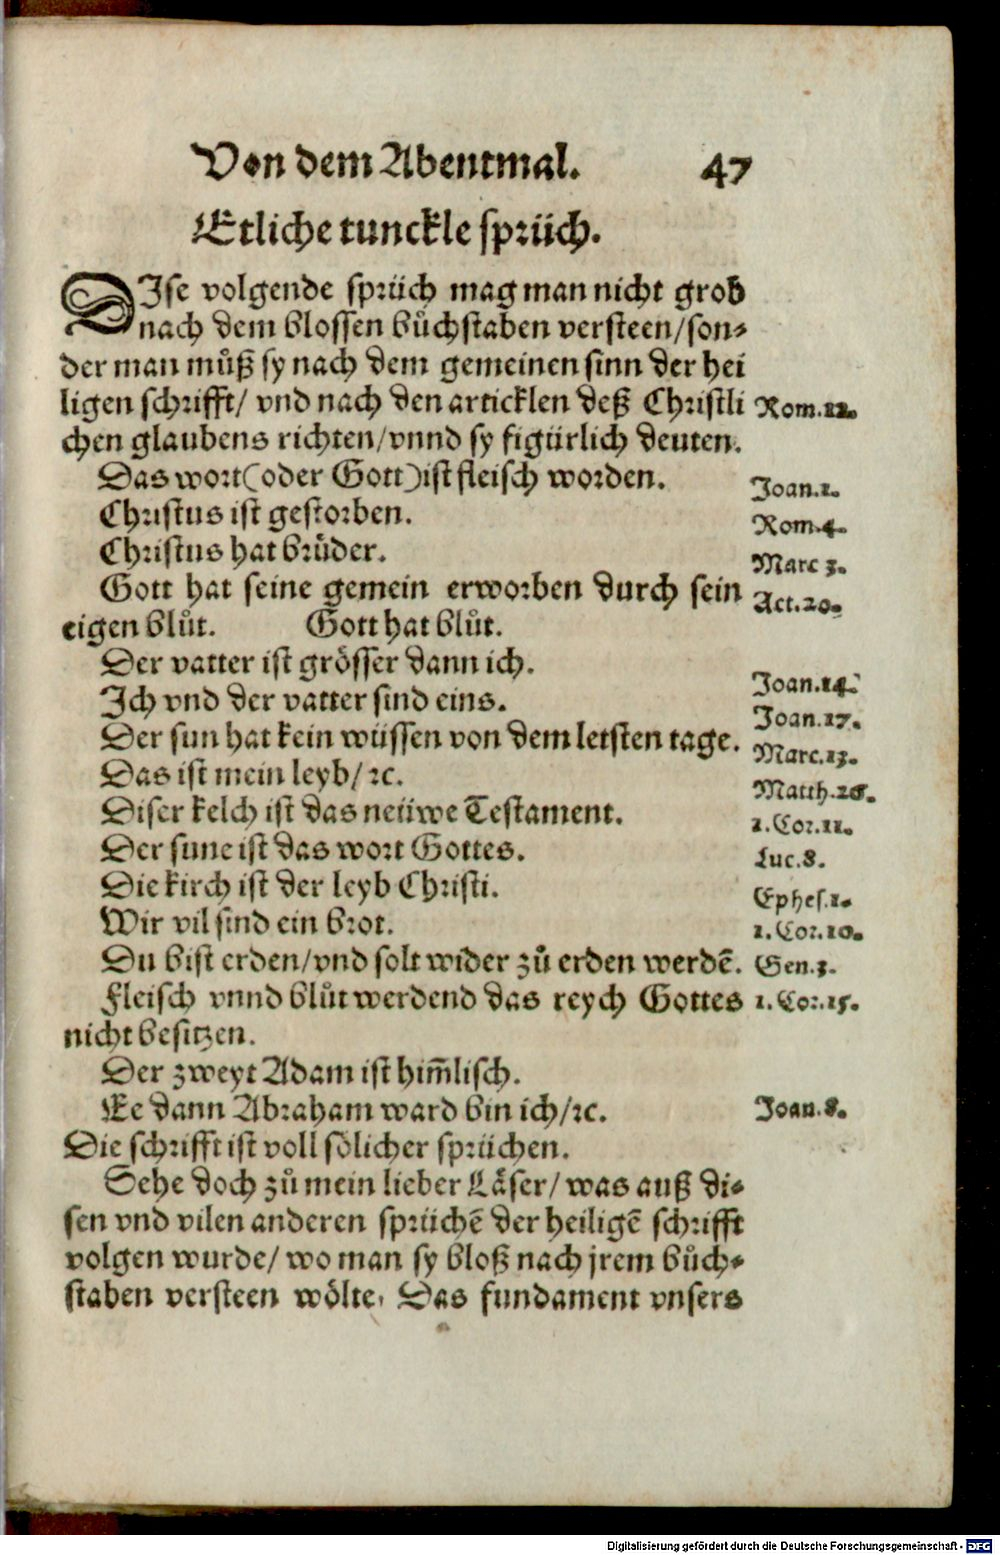 Von dem Abentmal. 47
Etliche tunckle sprüch.
DIse volgende sprüch mag man nicht grob
nach dem blossen bůchstaben versteen/son⸗
der man můß sy nach dem gemeinen sinn der hei
ligen schrifft/ vnd nach den articklen deß Christli Rom.12.
chen glaubens richten/vnnd sy figürlich deuten.
Das wort(oder Gott)ist fleisch worden. Joan.1.
Christus ist gestorben. Rom.4.
Christus hat brůder. Marc 3.
Gott hat seine gemein erworben durch sein Act.20.
eigen blůt. Gott hat blůt.
Der vatter ist grösser dann ich. Joan.14.
Ich vnd der vatter sind eins. Joan.17.
Der sun hat kein wüssen von dem letsten tage. Marc.13.
Das ist mein leyb/ ꝛc. Matth.26.
Diser kelch ist das neüwe Testament. 1.Cor.11.
Der sune ist das wort Gottes. Luc.8.
Die kirch ist der leyb Christi. Ephes.1.
Wir vil sind ein brot. 1.Cor.10.
Du bist erden/vnd solt wider zů erden werdẽ. Gen.3.
Fleisch vnnd blůt werdend das reych Gottes 1.Cor.15.
nicht besitzen.
Der zweyt Adam ist him̃lisch.
Ee dann Abraham ward bin ich/ꝛc. Joan.8.
Die schrifft ist voll sölicher sprüchen.
Sehe doch zů mein lieber Läser/ was auß di⸗
sen vnd vilen anderen sprüchẽ der heiligẽ schrifft
volgen wurde/ wo man sy bloß nach jrem bůch⸗
staben versteen wölte. Das fundament vnsers
Digitalisierung gefördert durch die Deutsche Forschungsgemeinschaft - DFG